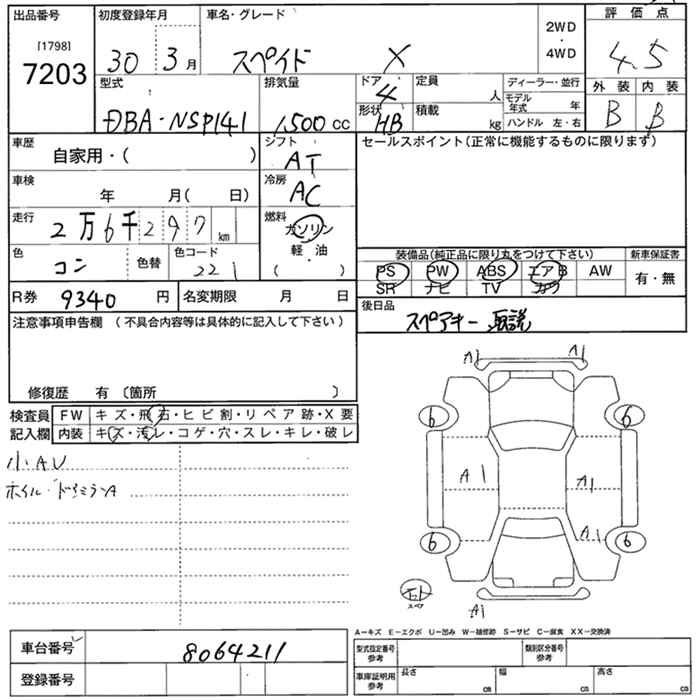 出品番号
[1798]
7203
初度登録年月
30 3月
車名・グレード
スペイド X
2WD
・
4WD
評価点
4.5
外装 内装
B B
型式
DBA-NSP141
排気量
1,500 cc
ドア
4
形状
HB
定員
人
積載
kg
ディーラー・並行
モデル年式 年
ハンドル 左・右
車歴
自家用・( )
車検
年 月( 日)
走行
2万6千297km
色
コン
色替
色コード
221
シフト
AT
冷房
AC
燃料
ガソリン
軽・油
( )
セールスポイント(正常に機能するものに限ります)
装備品(純正品に限り丸をつけて下さい)
新車保証書
PS PW ABS エアB AW
SR ナビ TV カワ
有・無
R券
9340円
名変期限 月 日
後日品
スペアキー 取説
注意事項申告欄 (不具合内容等は具体的に記入して下さい)
修復歴 有〔箇所 〕
検査員記入欄
FW キズ・飛石・ヒビ割・リペア跡・X要
内装 キズ・汚レ・コゲ・穴・スレ・キレ・破レ
小AU
ホイル・ドアミラーA
A1 A1
6 6
A1 A1
A1
6 6
スペア
A1
A−キズ E−エクボ U−凹み W−補修跡 S−サビ C−腐食 XX−交換済
車台番号
8064211
登録番号
型式指定番号
参考
類別区分番号
参考
車庫証明用
参考
長さ cm
幅 cm
高さ cm